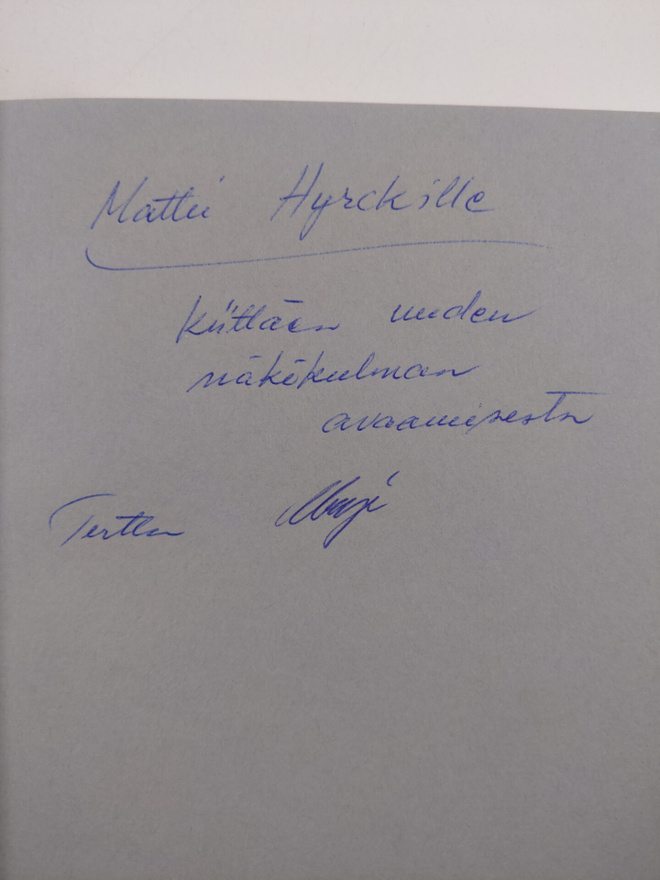 Matti Hyrckille
Kiittäen uuden
näkökulman
avaamisesta
Terttu